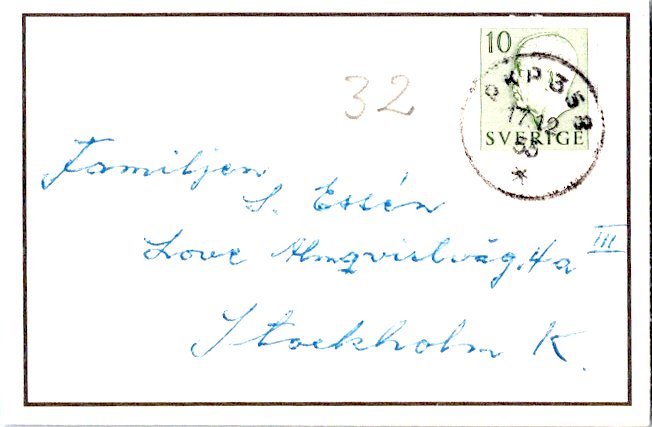 10
PKP 358
17.12
53
SVERIGE
32
Familjen
S. Essén
Love Almqvistväg. 4a III
Stockholm K.